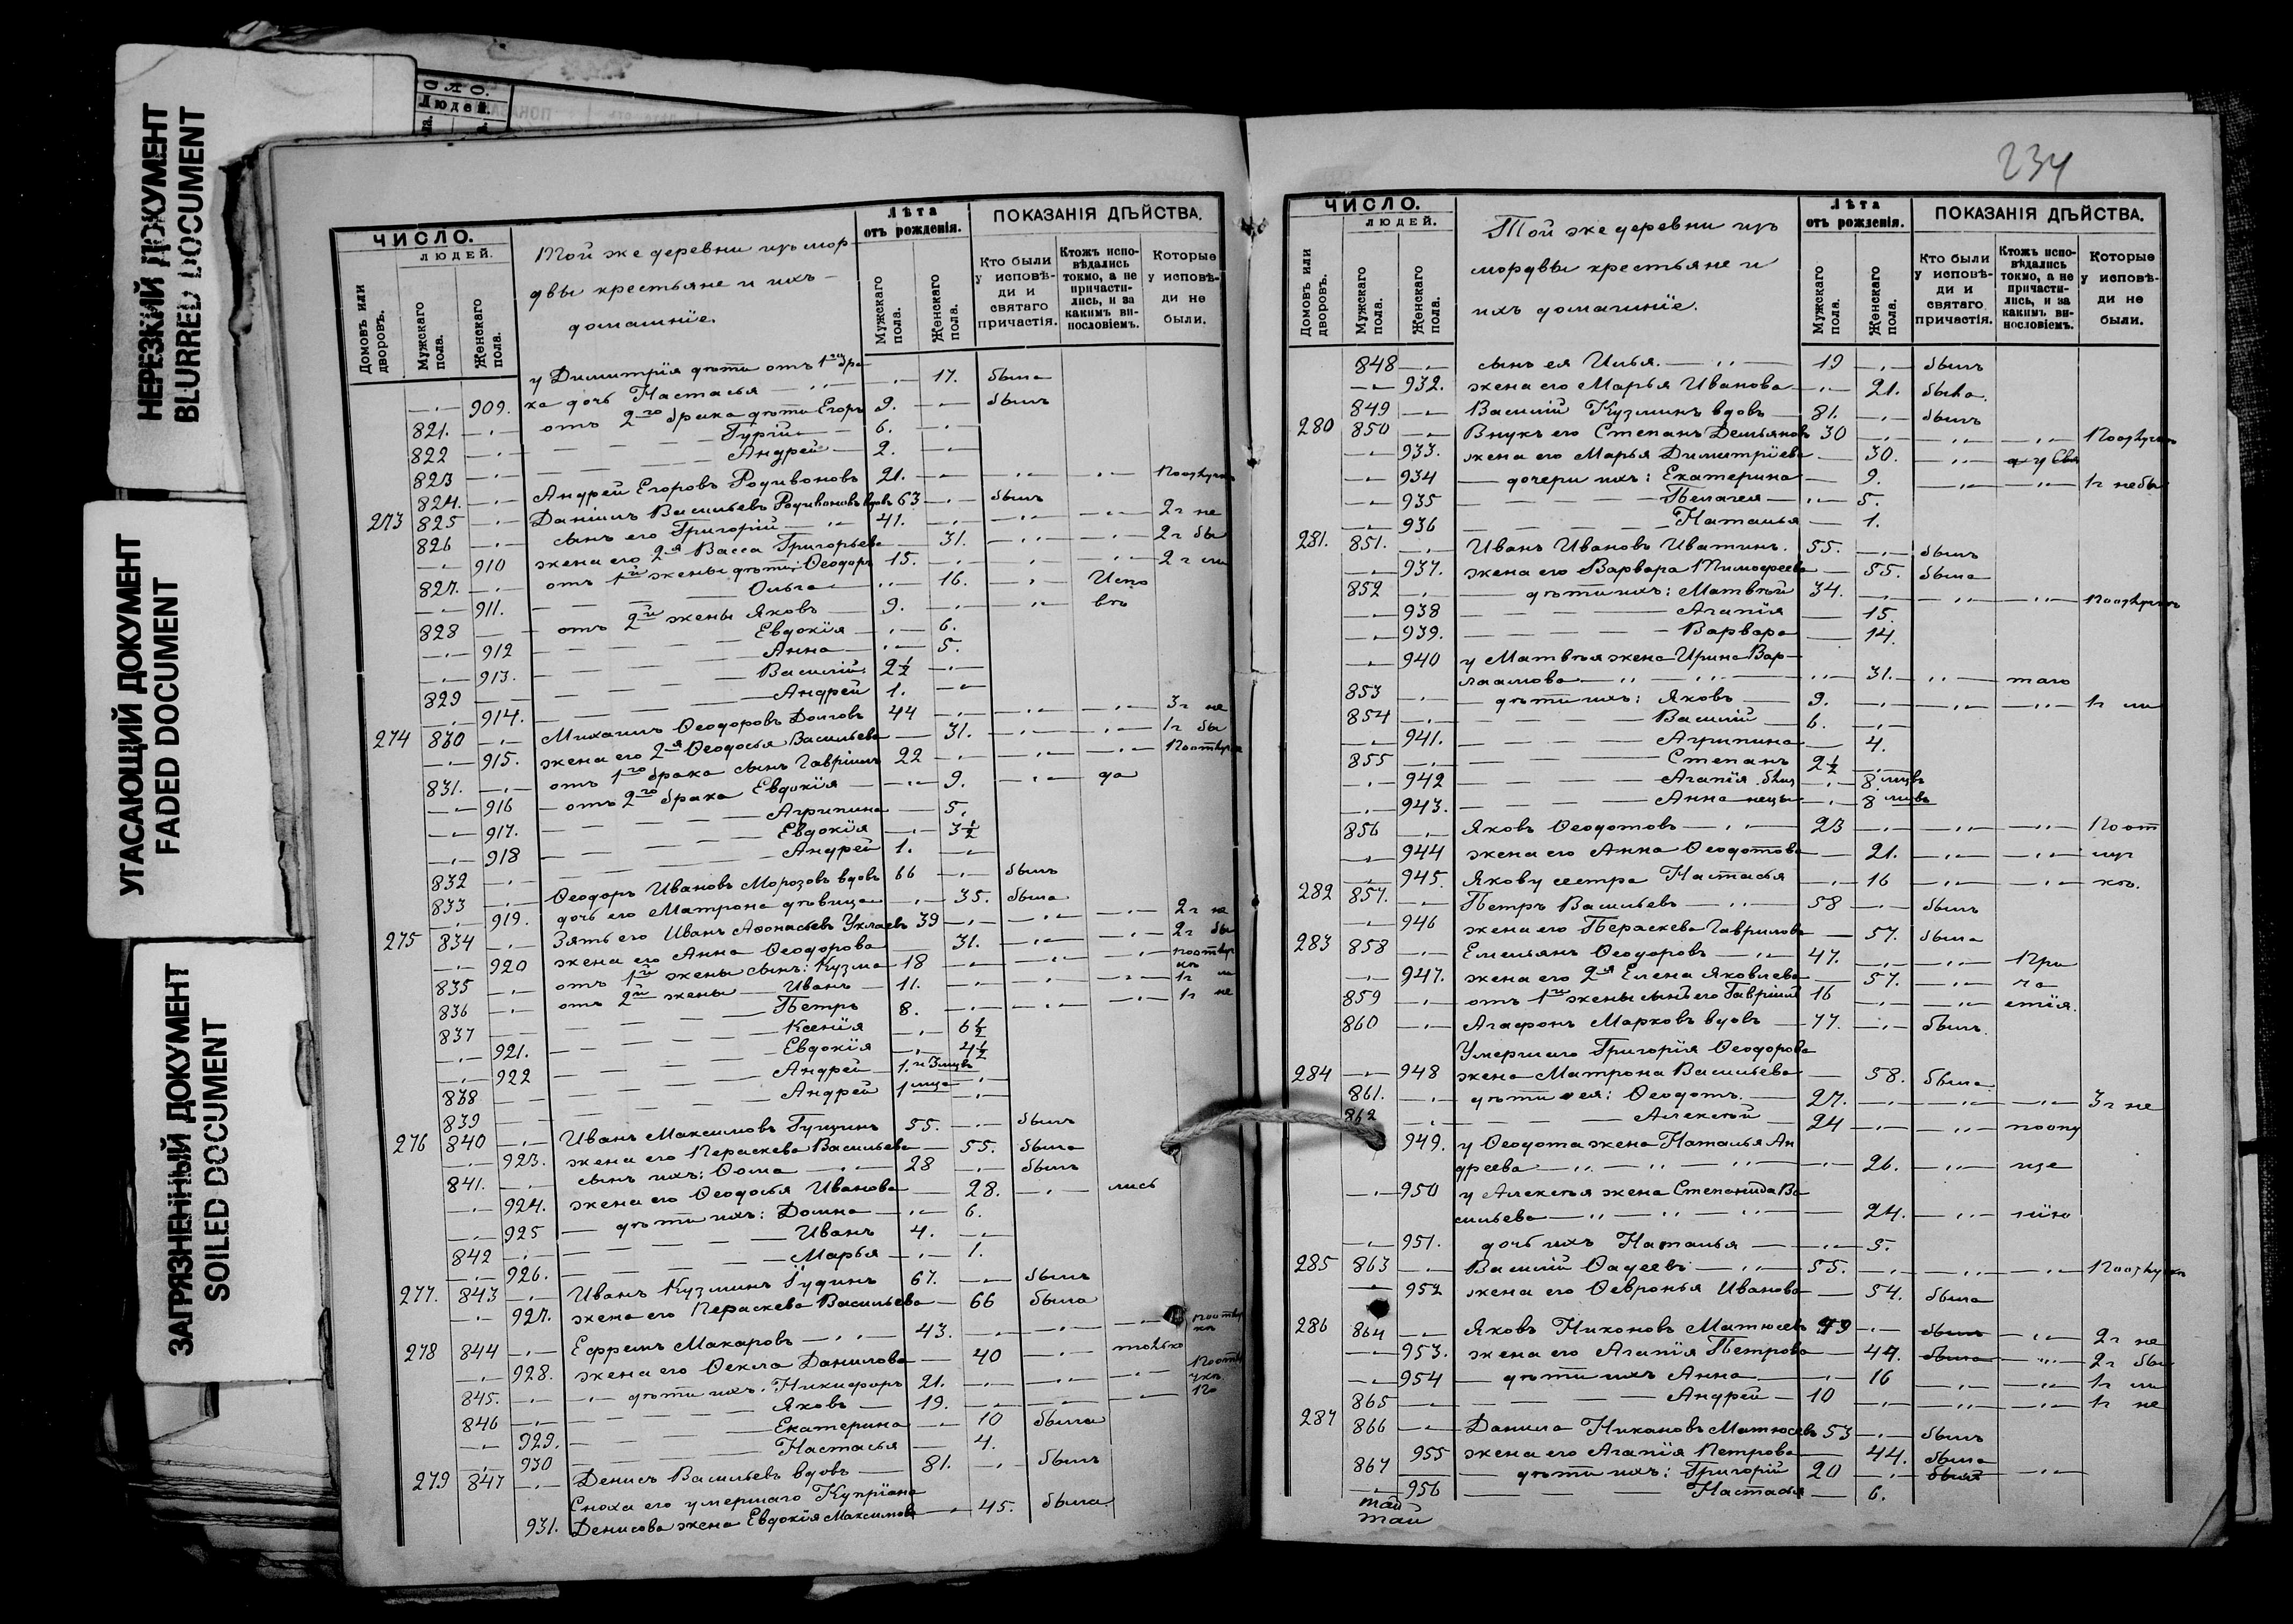 НЕРЕЗКИЙ ДОКУМЕНТ
BLURRED DOCUMENT
УГАСАЮЩИЙ ДОКУМЕНТ
FADED DOCUMENT
ЗАГРЯЗНЕННЫЙ ДОКУМЕНТ
SOILED DOCUMENT
Людей.
ЧИСЛО.
ЛЮДЕЙ.
Домовъ или дворовъ.
Мужскаго пола.
Женскаго пола.
Той же деревни изъ мор-
двы крестьяне и ихъ
домашніе.
Лѣта
отъ рожденія.
Мужскаго пола.
Женскаго пола.
ПОКАЗАНІЯ ДѢЙСТВА.
Кто были у исповѣ-ди и святаго причастія.
Ктожъ испо-вѣдались токмо, а не причасти-лись, и за какимъ ви-нословіемъ.
Которые у исповѣ-ди не были.
у Димитрія дѣти отъ 1го бра-
909. ка дочь Настасья 17. была
821. отъ 2го брака дѣти Егоръ 9. былъ
822 Гурій 6.
823 Андрей 2.
824. Андрей Егоровъ Родивоновъ 21.
273 825 Даніилъ Васильевъ Родивоновъ вдовъ 63 былъ
826 сынъ его Григорій 41. 2 г не
910 жена его 2я Васса Григорьева 31. 2 г бы
827. отъ 1й жены дѣти: Ѳеодоръ 15. 2 г ли
911. Ольга 16. Испо
828 отъ 2й жены Яковъ 9. вѣ
912 Евдокія 6.
913. Анна 5.
829 Василій 2½
914. Андрей 1.
274 830 Михаилъ Ѳеодоровъ Долговъ 44 3 г не
915. жена его 2я Ѳеодосья Васильева 31. 1 г бы
831. отъ 1го брака сынъ Гавріилъ 22
916 отъ 2го брака Евдокія 9. да
917. Агрипина 5.
918 Евдокія 3½
832 Андрей 1.
833 Ѳеодоръ Ивановъ Морозовъ вдовъ 66 былъ
919. дочь его Матрона дѣвица 35. была
275 834 Зять его Иванъ Аѳонасьевъ 39 2 г не
920 жена его Анна Ѳеодорова 31. 2 г бы
835 отъ 1й жены сынъ: Кузма 18
836 отъ 2й жены Иванъ 11. 1 г ли
837 Петръ 8. 1 г не
921. Ксенія 6½
922 Евдокія 4½
838 Андрей 1. и 3 мцвъ
839 Андрей 1 мца
276 840 Иванъ Максимовъ 55. былъ
923. жена его Параскева Васильева 55. была
841. сынъ ихъ: Ѳома 28 былъ
924. жена его Ѳеодосья Иванова 28. лись
925 дѣти ихъ: Домна 6.
842 Иванъ 4.
926. Марья 1.
277. 843 Иванъ Кузминъ Гудинъ 67. былъ
927. жена его Параскева Васильева 66 была
278 844 Ефремъ Макаровъ 43.
928. жена его Ѳекла Данилова 40 только
845. дѣти ихъ: Никифоръ 21.
846 Яковъ 19.
929. Екатерина 10 была
930 Настасья 4.
279 847 Денисъ Васильевъ вдовъ 81. былъ
Сноха его умершаго Купріана
931. Денисова жена Евдокія Максимова 45. была
234
ЧИСЛО.
ЛЮДЕЙ.
Домовъ или дворовъ.
Мужскаго пола.
Женскаго пола.
Той же деревни изъ
мордвы крестьяне и
ихъ домашніе.
Лѣта
отъ рожденія.
Мужскаго пола.
Женскаго пола.
ПОКАЗАНІЯ ДѢЙСТВА.
Кто были у исповѣ-ди и святаго причастія.
Ктожъ испо-вѣдались токмо, а не причасти-лись, и за какимъ ви-нословіемъ.
Которые у исповѣ-ди не были.
848 сынъ ея Илья. 19 былъ
932. жена его Марья Иванова 21. была.
849 Василій Кузминъ вдовъ 81. былъ
280 850 Внукъ его Степанъ Демьяновъ 30
933. жена его Марья Димитріева 30. у Свя
934 дочери ихъ: Екатерина 9. 1 г небы
935 Пелагея 5.
936 Наталья 1.
281. 851. Иванъ Ивановъ Иватинъ. 55. былъ
937. жена его Варвара Тимоѳеева 55. была
852 дѣти ихъ: Матвѣй 34.
938 Агапія 15.
939. Варвара 14.
940 у Матвѣя жена Ирина Вар-
лаамова 31. таго
853 дѣти ихъ: Яковъ 9. 1 г ли
854 Василій 6.
941. Агрипина 4.
855 Степанъ 2½
942 Агапія 8 мцвъ
943. Анна 8 мцвъ
856 Яковъ Ѳеодотовъ 23
944 жена его Анна Ѳеодотова 21.
945. Якову сестра Настасья 16
282 857. Петръ Васильевъ 58 былъ
946 жена его Параскева Гаврилова 57. была
283 858 Емельянъ Ѳеодоровъ 47. При
947. жена его 2я Елена Яковлева 57. ча
859 отъ 1й жены сынъ его Гавріилъ 16 стія.
860 Агафонъ Марковъ вдовъ 77. былъ.
Умершаго Григорія Ѳеодорова
284 948 жена Матрона Васильева 58. была
861. дѣти ея: Ѳеодотъ. 27. 3 г не
862 Алексѣй 24
949. у Ѳеодота жена Наталья Ан
дреева 26. ще
950 у Алексѣя жена Степанида Ва
сильева 24. нію
951. дочь ихъ Наталья 5.
285 863 Василій Ѳадеевъ 55.
952 жена его Ѳевронья Иванова 54. была
286 864 Яковъ Никоновъ Матюсевъ 49 былъ 2 г не
953. жена его Агапія Петрова 44. была 2 г бы
954 дѣти ихъ Анна 16 1 г ли
865 Андрей 10 1 г не
287 866 Данила Никановъ Матюсевъ 53 былъ
955 жена его Агапія Петрова 44. была
867 дѣти ихъ: Григорій 20 былъ
956 Настасья 6.
май
май